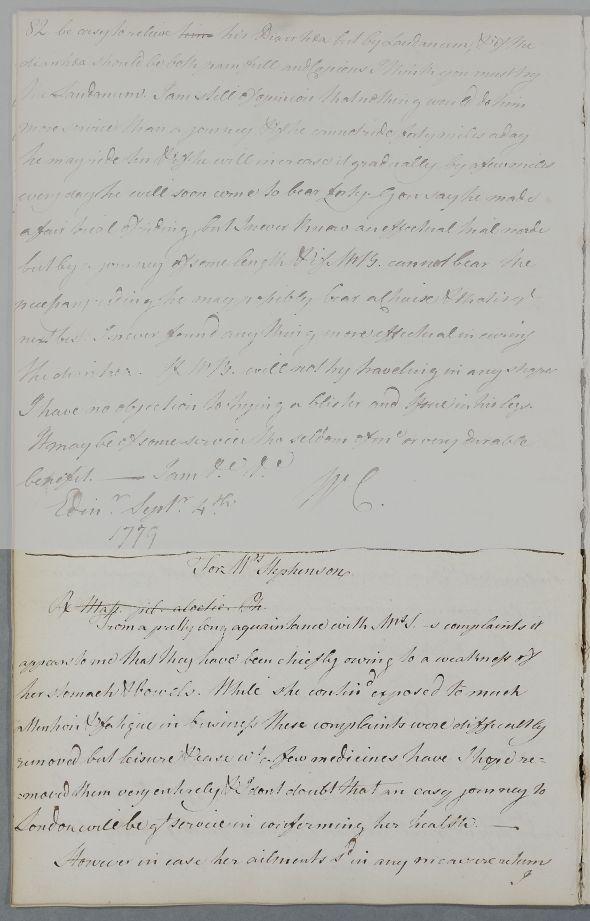 82 be easy to relieve him his Diarrhœa but by Laudanum, & if the
diarrhœa should be both painfull and Copious I think you must try
the Laudanum. I am still of opinion that nothing would do him
more service than a journey & if he cannot ride forty miles a day
he may ride ten & if he will increase it gradually by a few miles
every day he will soon come to bear forty. You say he made
a fair trial of riding, but I never knew an effectual trial made
but by a journey of some length & if Mr B. cannot bear the
necessary riding he may possibly bear a chaise & that is ye
next best. I never found any thing more effectual in curing
the diarrhœa. If Mr B. will not try traveling in any shape
I have no objection to trying a blister and Issue in his legs.
It may be of some service tho seldom of mc or very durable
benefit. — I am &c &c
W C.
Edinr Septr 4th
1779
For Mrs Stephenson
℞ Mass. pil.
From a pretty long aquaintance with Mrs S-s complaints it
appears to me that they have been chiefly owing to a weakness of
her stomach & bowels. While she contind exposed to much
attention & fatigue in business these complaints were difficultly
removed but leisure & ease wt a few medicines have I hope re=
=moved them very entirely, & I dont doubt that an easy journey to
London will be of service in confirming her health. —
However in case her ailments sd in any measure return